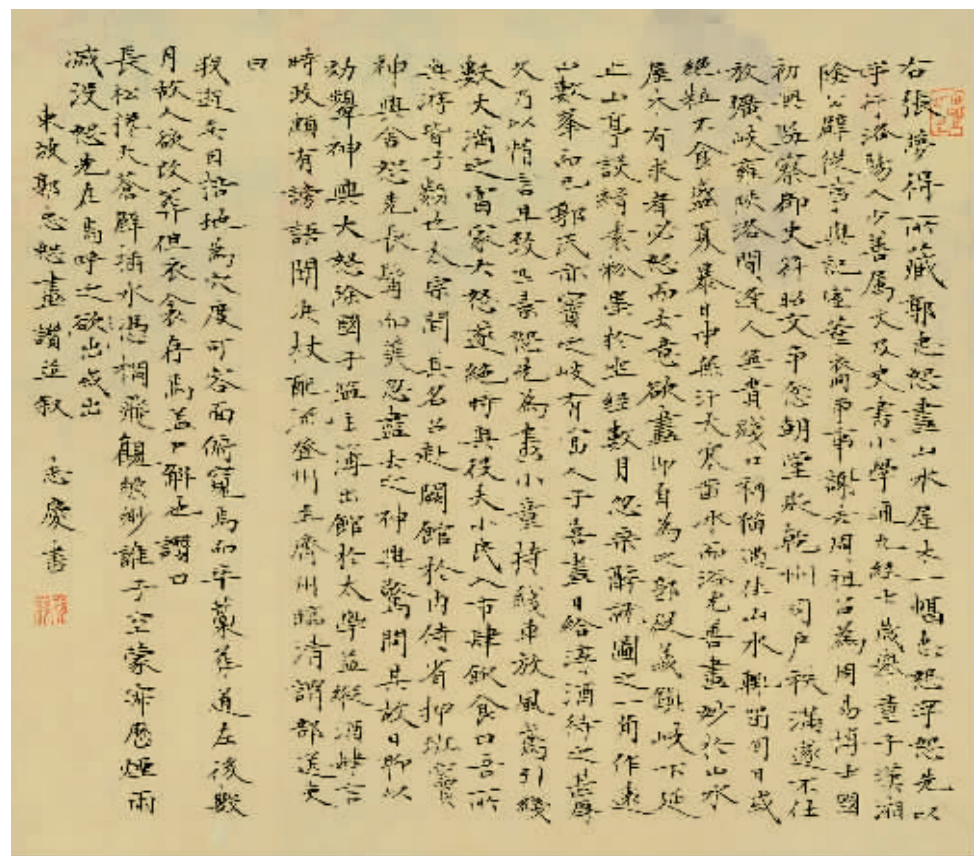 右張夢得所藏郭忠恕畫山水屋木一幅忠恕字恕先以
字行洛陽人少善屬文及史書小學通九經七歲舉童子漢湘
陰公辟從事與記室董裔爭事謝去周祖召為周易博士國
初與監察御史符昭文爭忿朝堂貶乾州司戶秩滿遂不仕
放曠岐雍陝洛間逢人無貴賤口稱猫遇佳山水輒留旬日或
絕粒不食盛夏暴日中無汗大寒鑿冰而浴尤善畫妙於山水
屋木有求者必怒而去意欲畫即自為之郭從義鎮岐下延
止山亭設絹素粉墨於坐經數月忽乘醉就圖之一角作遠
山數峯而已郭氏亦寶之岐有富人子喜畫日給淳酒待之甚厚
久乃以情言且致匹素恕先為畫小童持綫車放風鳶引綫
數丈滿之富家大怒遂絕時與役夫小民入市肆飲食曰吾所
與游皆子類也太宗聞其名召赴闕館於內侍省押班竇
神興舍恕先長髯而美忽盡去之神興驚問其故曰聊以
効顰神興大怒除國子監主簿出館於太學益縱酒肆言
時政頗有謗語聞決杖配流登州至齊州臨清謂部送吏
曰
我逝矣因掊地為穴度可容面俯窺焉而卒藁葬道左後數
月故人欲改葬但衣衾存焉蓋尸解也讚曰
長松攙天蒼壁插水憑欄飛觀縹緲誰子空蒙寂歷煙雨
滅沒恕先在焉呼之欲出或出
東坡郭忠恕畫讚並叙 志慶書